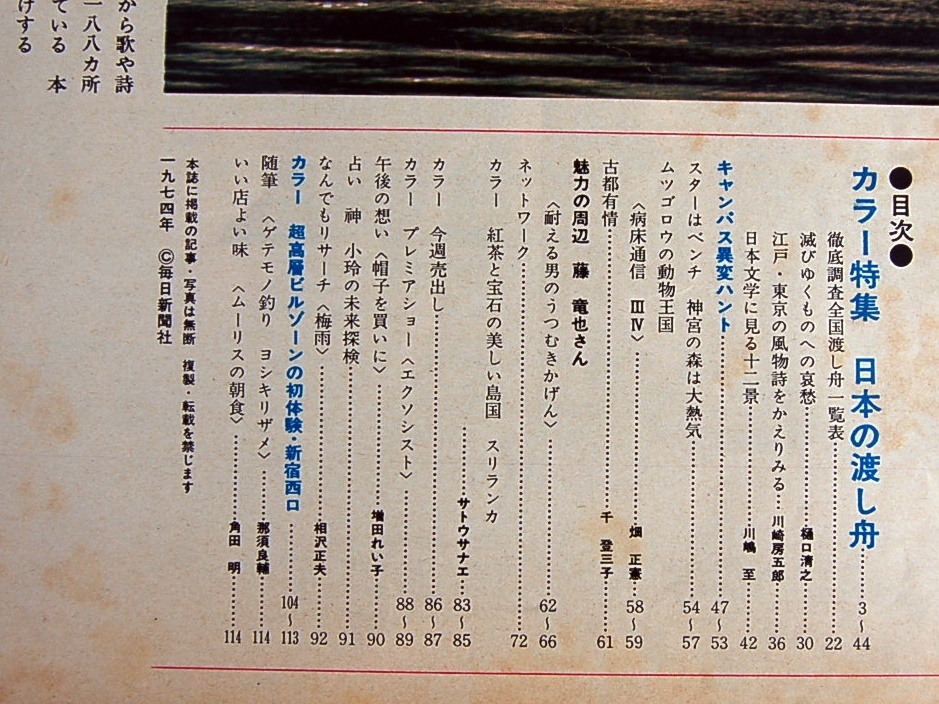 ●目次●
カラー特集　日本の渡し舟……3〜44
徹底調査全国渡し舟一覧表……22
滅びゆくものへの哀愁……樋口清之……30
江戸・東京の風物詩をかえりみる……川崎房五郎……36
日本文学に見る十二景……川嶋　至……42
キャンパス異変ハント……47〜53
スターはベンチ　神宮の森は大熱気……54〜57
ムツゴロウの動物王国
〈病床通信　ⅢⅣ〉……畑　正憲……58〜59
古都有情……千　登三子……61
魅力の周辺　藤　竜也さん
〈耐える男のうつむきかげん〉……62〜66
ネットワーク……72
カラー　紅茶と宝石の美しい島国　スリランカ
……サトウサナエ……83〜85
カラー　今週売出し……86〜87
カラー　プレミアショー〈エクソシスト〉……88〜89
午後の想い〈帽子を買いに〉……増田れい子……90
占い　神　小玲の未来探検……91
なんでもリサーチ〈梅雨〉……相沢正夫……92
カラー　超高層ビルゾーンの初体験・新宿西口……104〜113
随筆　〈ゲテモノ釣り　ヨシキリザメ〉……那須良輔……114
いい店よい味　〈ムーリスの朝食〉……角田　明……114
本誌に掲載の記事・写真は無断　複製・転載を禁じます
一九七四年　©毎日新聞社
から歌や詩
一八八カ所
ている　本
けする